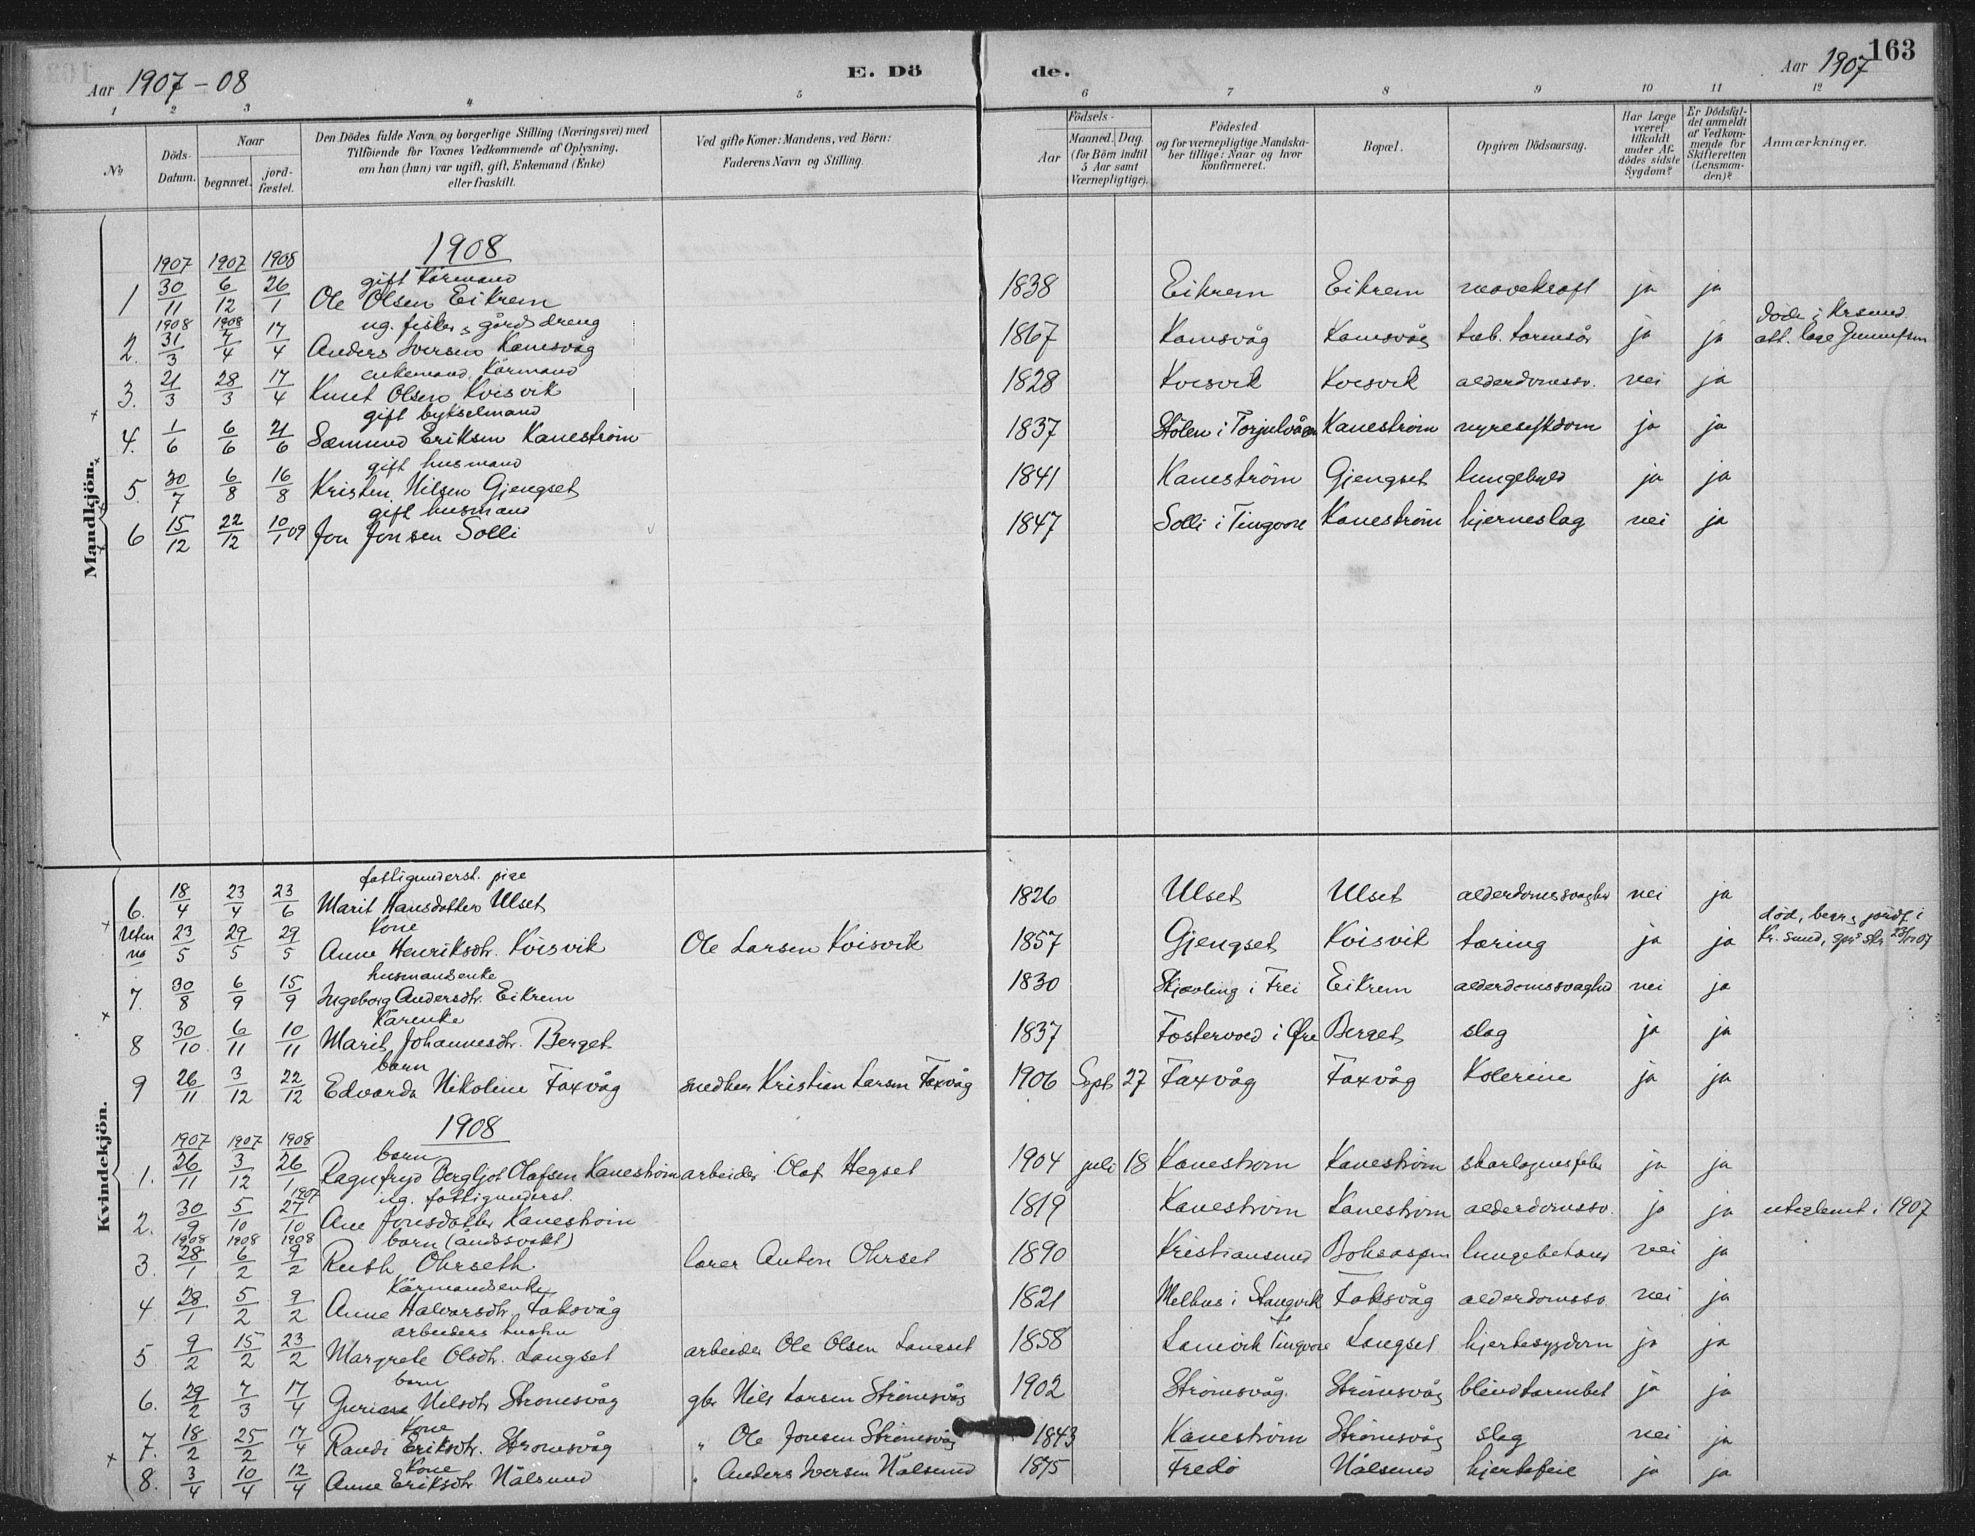 Aar 1907-08
E. Dö
de.
Aar 1907
163
1 2 3 4 5 6 7 8 9 10 11 12
No
Döds-Datum.
Naar
begravet.
jord-fæstet.
Den Dödes fulde Navn og borgerlige Stilling (Næringsvei) med
Tilföiende for Voxnes Vedkommende af Oplysning,
om han (hun) var ugift, gift, Enkemand (Enke)
eller fraskilt.
Ved gifte Koner: Mandens, ved Börn:
Faderens Navn og Stilling.
Födsels-
Aar
Maaned. Dag.
(for Börn indtil
5 Aar samt
Værnepligtige).
Födested
og for værnepligtige Mandska-
ber tillige: Naar og hvor
konfirmeret.
Bopæl.
Opgiven Dödsaarsag.
Har Læge
været
tilkaldt
under Af-
dödes sidste
Sygdom?
Er Dödsfal-
det anmeldt
af Vedkom-
mende for
Skifteretten
(Lensman-
den)?
Anmærkninger.
Mandkjön.
1908
1907 1907 1908
gift kårmand
1 30/11 6/12 26/1 Ole Olsen Eikrem 1838 Eikrem Eikrem mavekræft ja ja
1908 1908
ug. fisker, gårdsdreng
2. 31/3 7/4 17/4 Anders Iversen Kamsvåg 1867 Kamsvåg Kamsvåg tub. tarmsår ja ja døde i Krsund
att. læge
enkemand. Kårmand
3. 21/3 28/3 17/4 Knut Olsen Kvisvik 1828 Kvisvik Kvisvik alderdomssv. nei ja
gift bykselmand
4. 1/6 6/6 21/6 Sæmund Eriksen Kanestrøm 1837 Stølen i Torjulvågen Kanestrøm nyresykdom ja ja
gift husmand
5. 30/7 6/8 16/8 Kristen Nilsen Gjengset 1841 Kanestrøm Gjengset lungebyld ja ja
gift husmand
6 15/12 22/12 10/1 09 Jon Jonsen Solli 1847 Solli i Tingvoll Kanestrøm hjerneslag nei ja
Kvindekjön.
fattigunderst. pige
6. 18/4 23/4 23/6 Marit Hansdatter Ulset 1826 Ulset Ulset alderdomssvaghet nei ja
Kone
uten no 23/5 29/5 29/5 Anne Henriksdtr. Kvisvik Ole Larsen Kvisvik 1857 Gjengset Kvisvik tæring ja ja død, begr. & jordf. i
Kr.sund,
husmandsenke
7. 30/8 6/9 15/9 Ingeborg Andersdtr. Eikrem 1830 Skjevling i Frei Eikrem alderdomssvaghed nei ja
Kårenke
8 30/10 6/11 10/11 Marit Johannesdtr. Berget 1837 Fostervold i Øre Berget slag ja ja
barn
9 26/11 3/12 22/12 Edvarda Nikoline Faxvåg snedker Kristian Larsen Faxvåg 1906 Sept. 27 Faxvåg Faxvåg Kolerine ja ja
1908
1907 1907 1908
barn
1. 26/11 3/12 26/1 Ragnfryd Bergljot Olafsen Kanestrøm arbeider Olaf Hegset 1904 juli 18 Kanestrøm Kanestrøm skarlagensfeber ja ja
1907
ug. fattigunderst.
2. 30/9 5/10 27/10 Ane Jonsdatter Kanestrøm 1819 Kanestrøm Kanestrøm alderdomssv. ja ja uteglemt i 1907
1908 1908 1908
barn (åndssvakt)
3. 28/1 6/2 9/2 Ruth Ohrseth lærer Anton Ohrset 1890 Kristiansund lungebetæn nei ja
Kårmandsenke
4. 28/1 5/2 9/2 Anne Halvorsdtr. Faksvåg 1821 Melhus i Stangvik Faksvåg alderdomssv. nei ja
arbeiders hustru
5. 9/2 15/2 23/2 Margrete Olsdtr. Langset arbeider Ole Olsen Langset 1858 Tingvoll Langset hjertesygdom ja ja
barn
6. 29/2 7/3 17/4 Nilsdtr Strømsvåg gbr Nils Larsen Strømsvåg 1902 Strømsvåg Strømsvåg blindtarmbet ja ja
Kone
7. 18/2 25/2 17/4 Randi Eriksdtr. Strømsvåg " Ole Jonsen Strømsvåg 1843 Kanestrøm Strømsvåg slag nei ja
Kone
8. 3/4 10/4 12/4 Anne Eriksdtr Nålsund " Anders Iversen Nålsund 1875 Fredø Nålsund hjertefeil ja ja